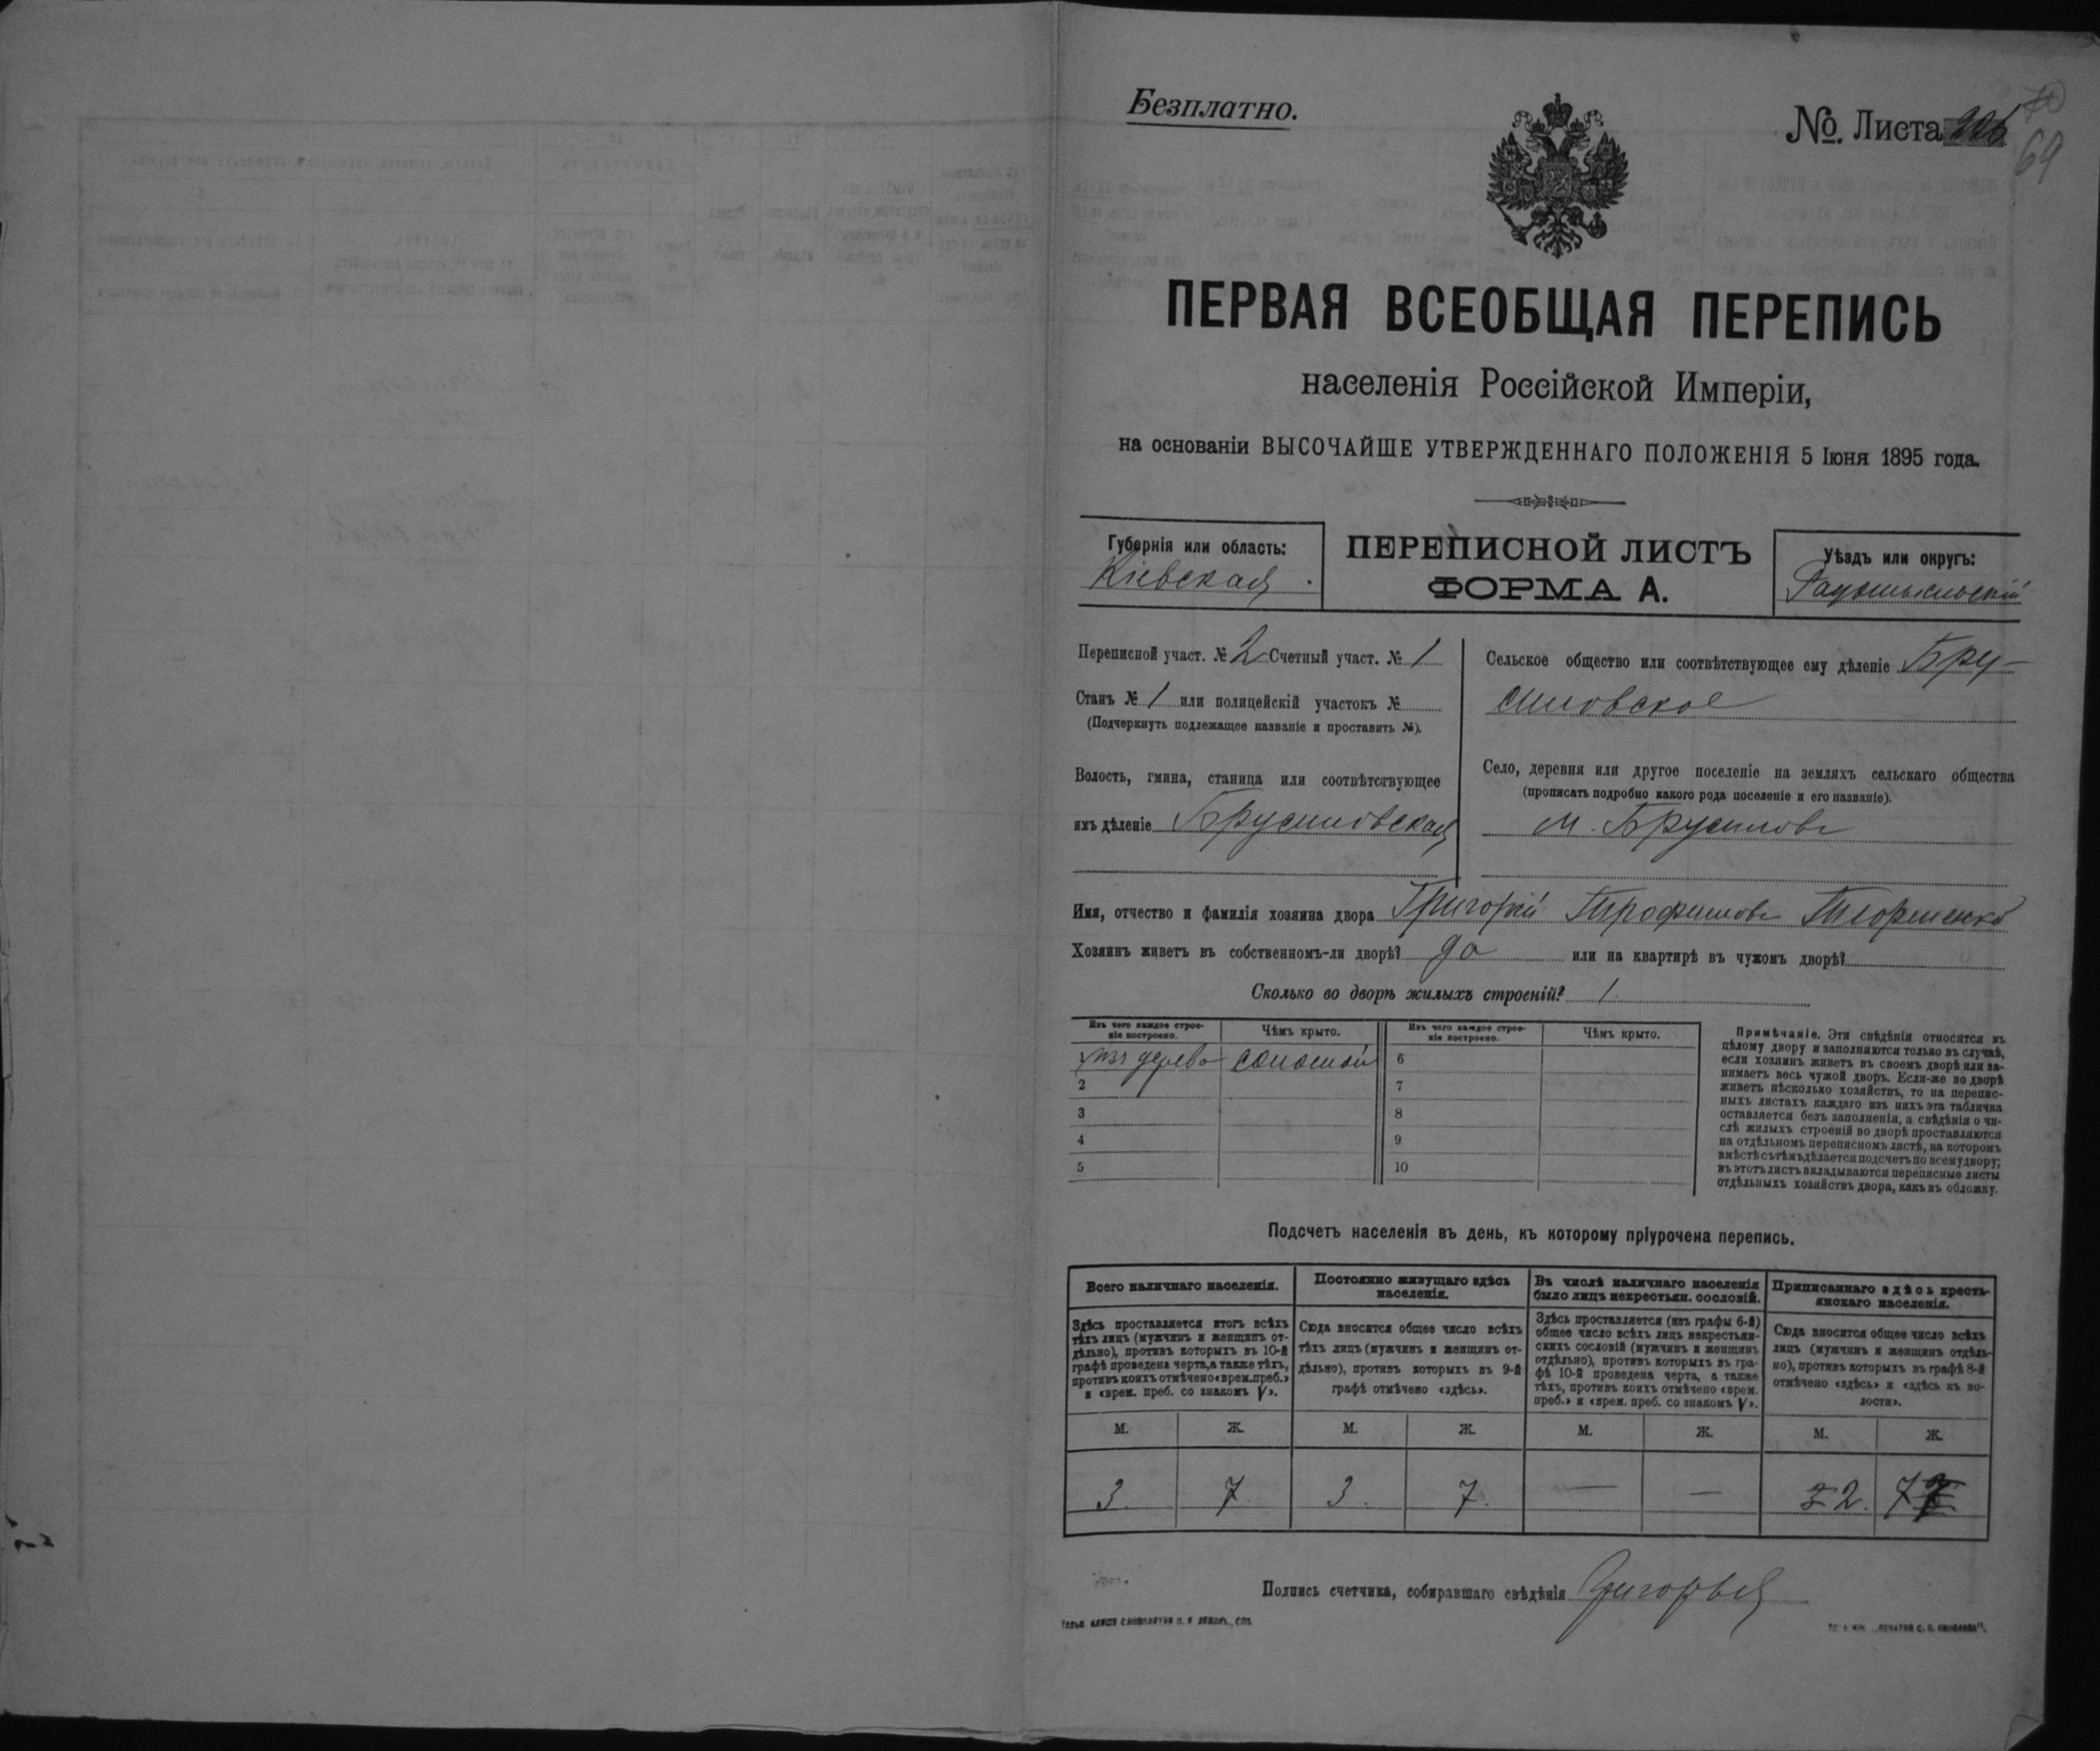 Безплатно.
№. Листа
69
ПЕРВАЯ ВСЕОБЩАЯ ПЕРЕПИСЬ
населенія Россійской Имперіи,
на основаніи ВЫСОЧАЙШЕ УТВЕРЖДЕННАГО ПОЛОЖЕНІЯ 5 Іюня 1895 года.
Губернія или область:
Кіевская
ПЕРЕПИСНОЙ ЛИСТЪ
ФОРМА А.
Уѣздъ или округъ:
Радомысльскій
Переписной участ. № 2 Счетный участ. № 1
Станъ № 1 или полицейскій участокъ №
(Подчеркнуть подлежащее названіе и проставить №).
Волость, гмина, станица или соотвѣтствующее
имъ дѣленіе Брусиловская
Сельское общество или соотвѣтствующее ему дѣленіе Бру-
силовское
Село, деревня или другое поселеніе на земляхъ сельскаго общества
(прописать подробно какого рода поселеніе и его названіе).
м. Брусиловъ
Имя, отчество и фамилія хозяина двора Григорій Трофимовъ
Хозяинъ живетъ въ собственномъ-ли дворѣ? да или на квартирѣ въ чужомъ дворѣ?
Сколько во дворѣ жилыхъ строеній? 1.
Изъ чего каждое строе-
ніе построено.
Чѣмъ крыто.
Изъ чего каждое строе-
ніе построено.
Чѣмъ крыто.
изъ дерева соломой 6
2 7
3 8
4 9
5 10
Примѣчаніе. Эти свѣдѣнія относятся къ
цѣлому двору и заполняются только въ случаѣ,
если хозяинъ живетъ въ своемъ дворѣ или за-
нимаетъ весь чужой дворъ. Если-же во дворѣ
живетъ нѣсколько хозяйствъ, то на перепис-
ныхъ листахъ каждаго изъ нихъ эта табличка
оставляется безъ заполненія, а свѣдѣнія о чи-
слѣ жилыхъ строеній во дворѣ проставляются
на отдѣльномъ переписномъ листѣ, на которомъ
вмѣстѣ съ тѣмъ дѣлается подсчетъ по всему двору;
въ этотъ листъ вкладываются переписные листы
отдѣльныхъ хозяйствъ двора, какъ въ обложку.
Подсчетъ населенія въ день, къ которому пріурочена перепись.
Всего наличнаго населенія.
Здѣсь проставляется итогъ всѣхъ
тѣхъ лицъ (мужчинъ и женщинъ от-
дѣльно), противъ которыхъ въ 10-й
графѣ проведена черта, а также тѣхъ,
противъ коихъ отмѣчено «врем. преб.»
и «врем. преб. со знакомъ V».
Постоянно живущаго здѣсь
населенія.
Сюда вносится общее число всѣхъ
тѣхъ лицъ (мужчинъ и женщинъ от-
дѣльно), противъ которыхъ въ 9-й
графѣ отмѣчено «здѣсь».
Въ числѣ наличнаго населенія
было лицъ некрестьян. сословій.
Здѣсь проставляется (изъ графы 6-й)
общее число всѣхъ лицъ некрестьян-
скихъ сословій (мужчинъ и женщинъ
отдѣльно), противъ которыхъ въ гра-
фѣ 10-й проведена черта, а также
тѣхъ, противъ коихъ отмѣчено «врем.
преб.» и «врем. преб. со знакомъ V».
Приписаннаго здѣсь кресть-
янскаго населенія.
Сюда вносится общее число всѣхъ
лицъ (мужчинъ и женщинъ отдѣль-
но), противъ которыхъ въ графѣ 8-й
отмѣчено «здѣсь» и «здѣсь къ во-
лости».
М. Ж. М. Ж. М. Ж. М. Ж.
3. 7. 3. 7. — — 2. 7
Подпись счетчика, собиравшаго свѣдѣнія